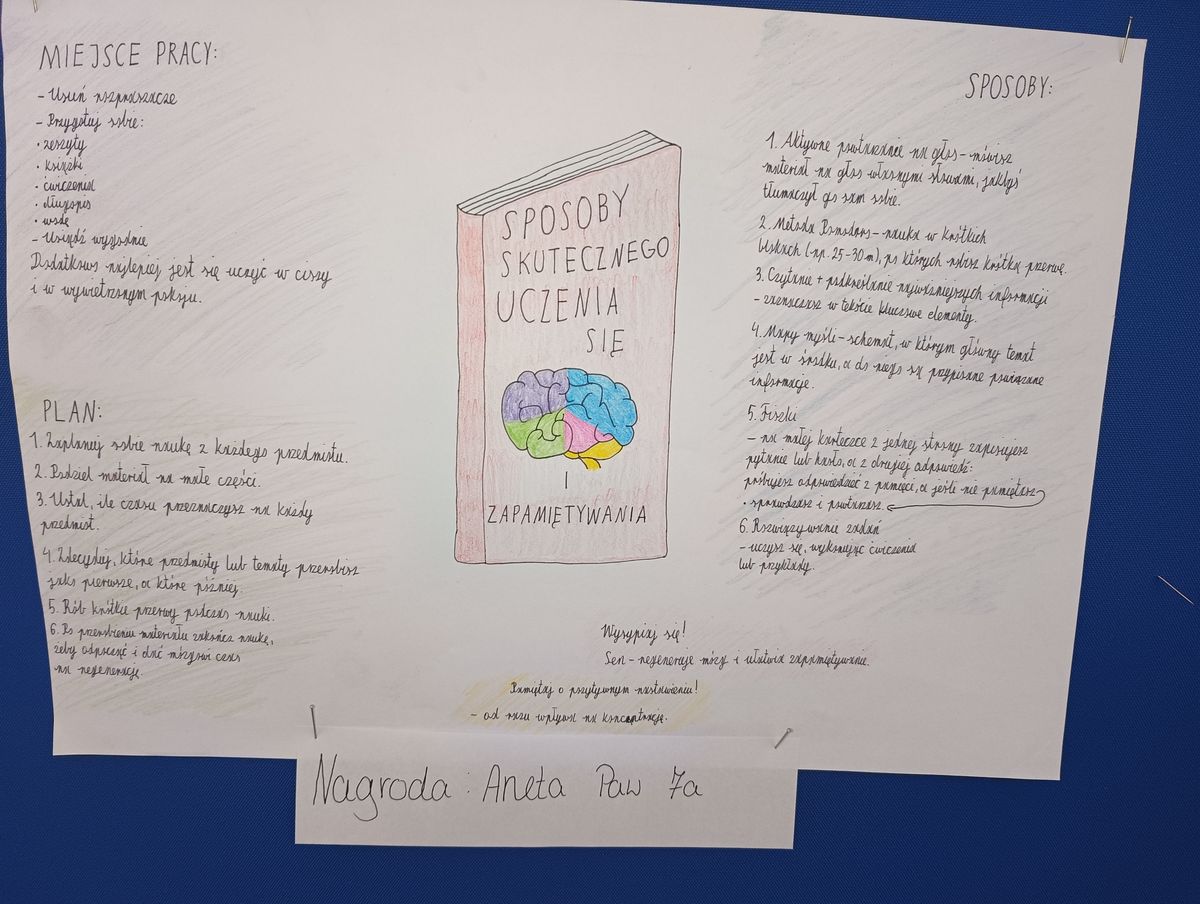 MIEJSCE PRACY:
- Usuń rozpraszacze
- Przygotuj sobie:
· zeszyty
· książki
· ćwiczenia
· długopis
· wodę
- Usiądź wygodnie
Dodatkowo najlepiej jest się uczyć w ciszy
i w wywietrzonym pokoju.
PLAN:
1. Zaplanuj sobie naukę z każdego przedmiotu.
2. Podziel materiał na małe części.
3. Ustal, ile czasu przeznaczysz na każdy
przedmiot.
4. Zdecyduj, które przedmioty lub tematy przerobisz
jako pierwsze, a które później.
5. Rób krótkie przerwy podczas nauki.
6. Po przerobieniu materiału zakończ naukę,
żeby odpocząć i dać mózgowi czas
na regenerację.
SPOSOBY
SKUTECZNEGO
UCZENIA
SIĘ
I
ZAPAMIĘTYWANIA
SPOSOBY:
1. Aktywne powtarzanie na głos - mówisz
materiał na głos własnymi słowami, jakbyś
tłumaczył go sam sobie.
2. Metoda Pomodoro - nauka w krótkich
blokach (np. 25-30 m), po których robisz krótką przerwę.
3. Czytanie + podkreślanie najważniejszych informacji
- zaznaczasz w tekście kluczowe elementy.
4. Mapy myśli - schemat, w którym główny temat
jest w środku, a do niego są przypisane powiązane
informacje.
5. Fiszki
- na małej karteczce z jednej strony zapisujesz
pytanie lub hasło, a z drugiej odpowiedź:
próbujesz odpowiedzieć z pamięci, a jeśli nie pamiętasz
· sprawdzasz i powtarzasz.
6. Rozwiązywanie zadań
- uczysz się, wykonując ćwiczenia
lub przykłady.
Wysypiaj się!
Sen - regeneruje mózg i ułatwia zapamiętywanie.
Pamiętaj o pozytywnym nastawieniu!
- od razu wpływa na koncentrację.
Nagroda: Aneta Paw 7a